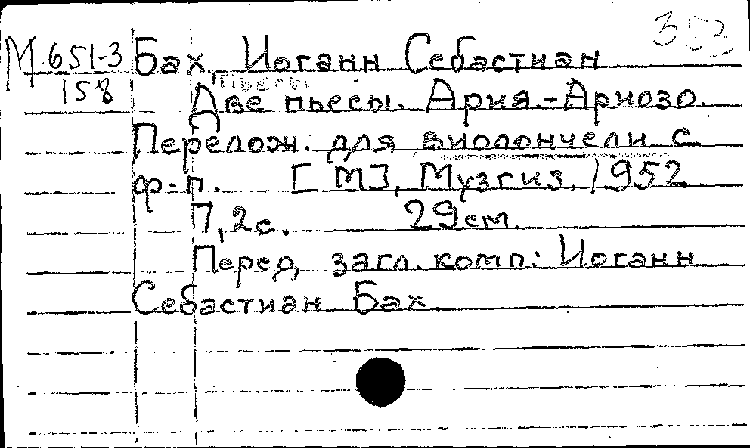 353
М 651-3 Бах, Иоганн Себастиан
158 Пьесы
Две пьесы. Ария.-Ариозо.
Перелож. для виолончели с
ф-п. [М], Музгиз, 1952
7,2с. 29см.
Перед загл. комп.: Иоганн
Себастиан Бах